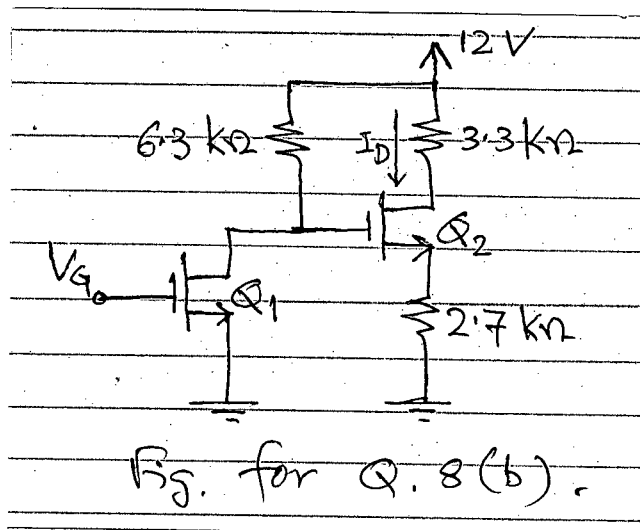 12 V
6.3 kΩ
I_D
3.3 kΩ
Q2
V_G
Q1
2.7 kΩ
Fig. for Q. 8(b).